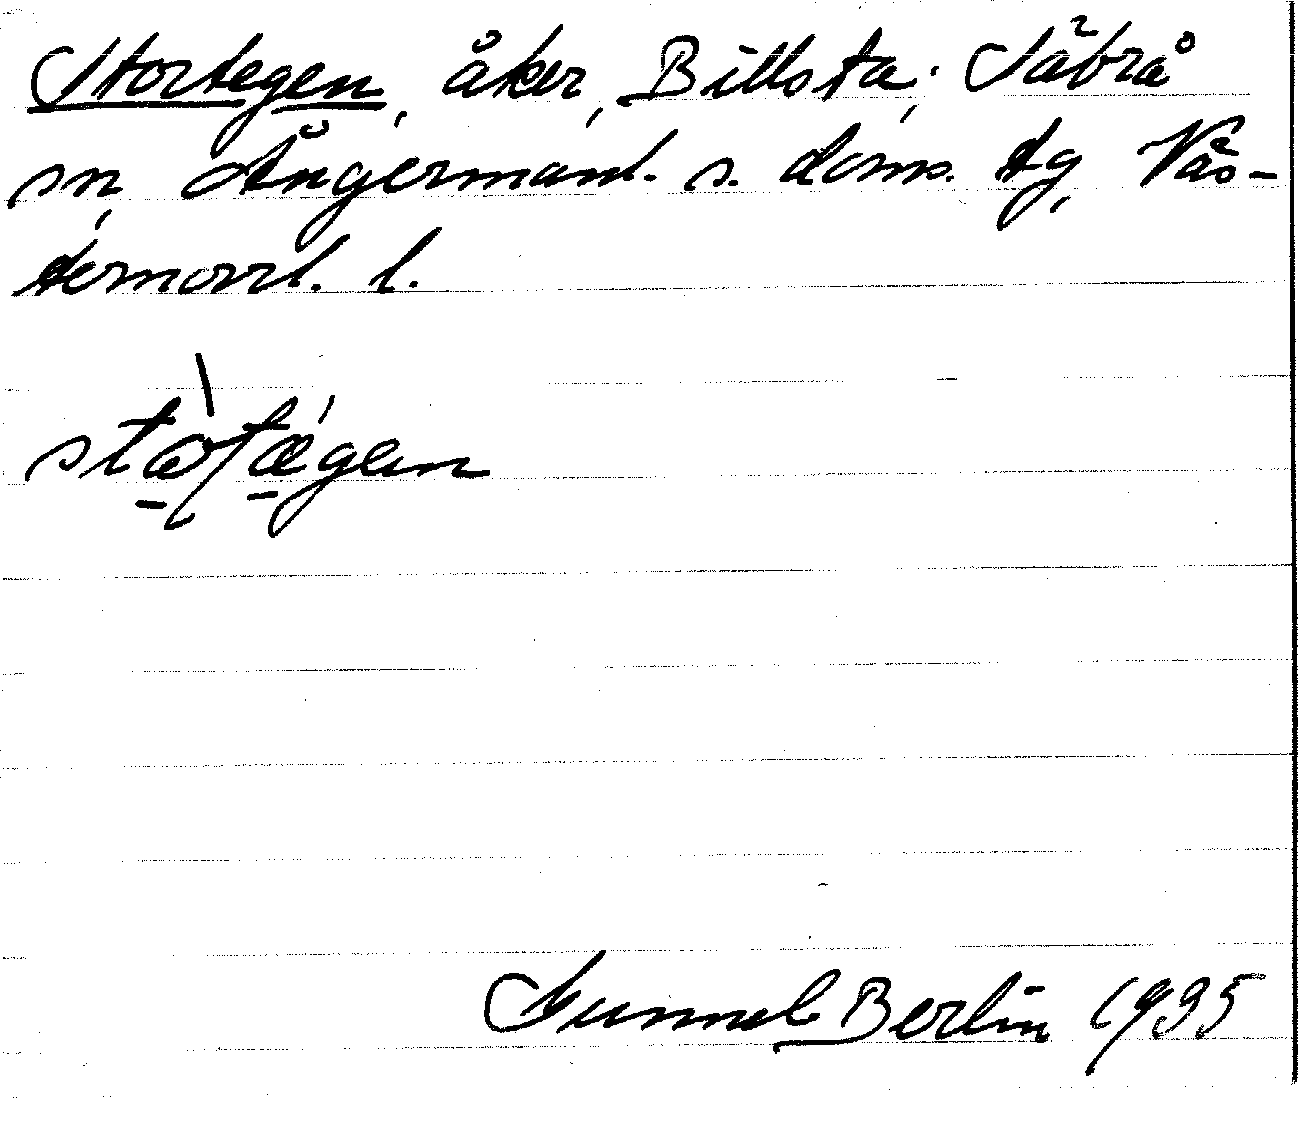 Stortegen, åker, Billsta, Säbrå
sn, Ångermanl. s. doms. tg, Väs-
ternorrl. l.
Gunnel Berlin 1935